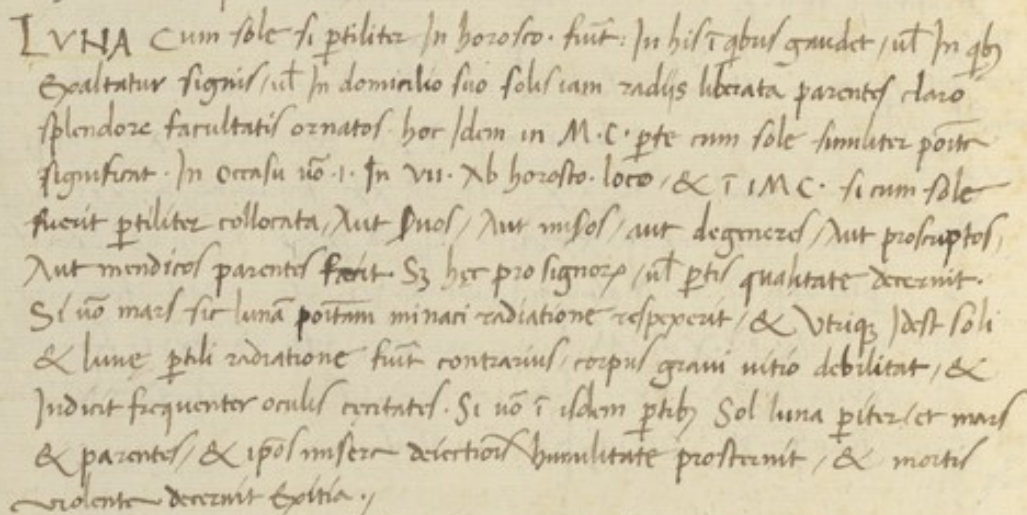 LVNA Cum sole si ꝑtiliter In horosco· fuῑt: In his ī qbus gaudet / ul̄ In qb3
Exaltatur signis / ul̄ In domicilio suo solis iam radijs liberata parentes claro
splendore facultatis ornatos· hoc Idem in M·C· ꝑte cum sole similiter
significat· In occasu uō ·I· In VII· Ab horosco· loco, & ī IMC· si cum sole
fuerit ꝑtiliter collocata, Aut / Aut / aut degeneres / Aut proscriptos,
Aut mendicos parentes S3 hęc pro signorꝝ, ul̄ ꝑtis qualitate decernit·
Si uō mars sic lunā minaci radiatione respexerit / & Vtriqꝫ Idest soli
& lunę ꝑtili radiatione contrarius, corpus graui uitio debilitat, &
Indicit frequenter oculis cęcitates· Si uō ī isdem ꝑtib3 Sol luna ꝑiter / et mars
& parentes / & ip̄os misere humilitate prosternit, & mortis
violente decernit Exitia ·,